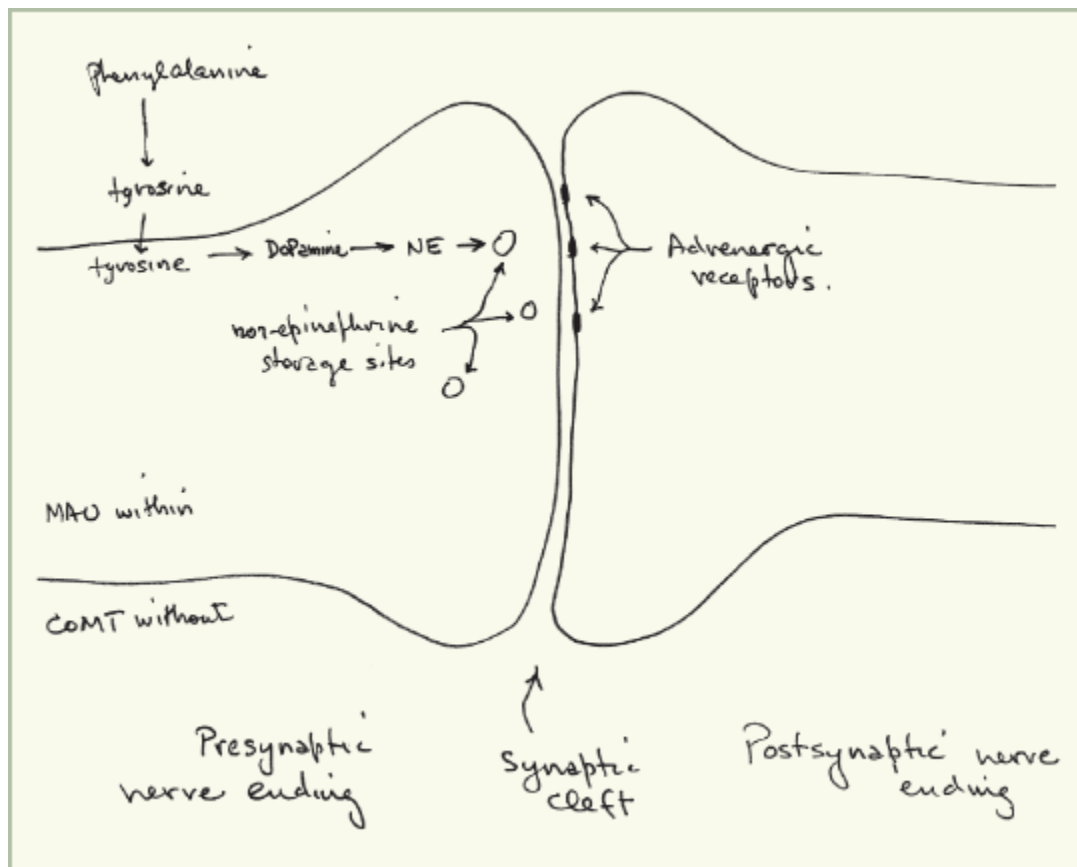 phenylalanine
tyrosine
tyrosine
Dopamine
NE
nor-epinephrine
storage sites
Adrenergic
receptors.
MAO within
COMT without
Presynaptic
nerve ending
Synaptic
cleft
Postsynaptic nerve
ending